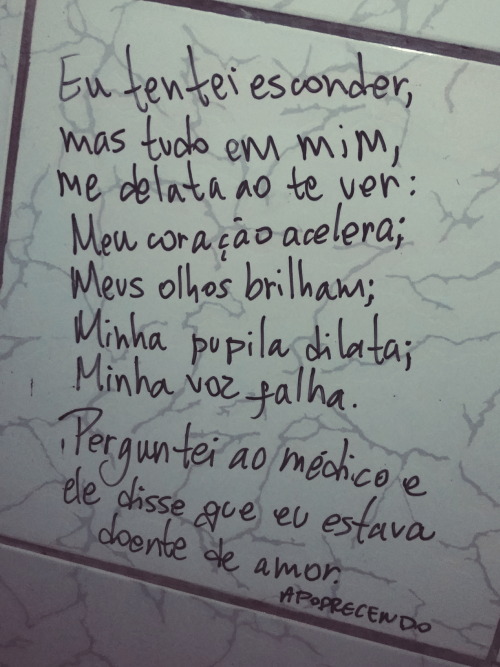 Eu tentei esconder,
mas tudo em mim,
me delata ao te ver:
Meu coração acelera;
Meus olhos brilham;
Minha pupila dilata;
Minha voz falha.
Perguntei ao médico e
ele disse que eu estava
doente de amor.
APOPRECENDO